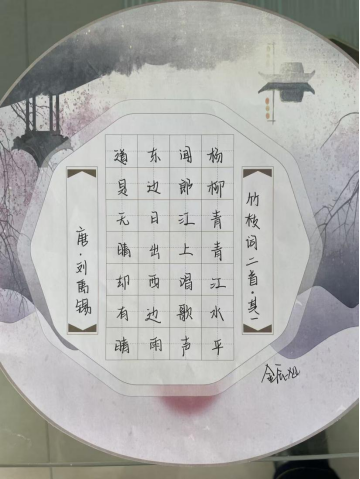 竹枝词二首·其一
杨柳青青江水平
闻郎江上唱歌声
东边日出西边雨
道是无晴却有晴
唐·刘禹锡